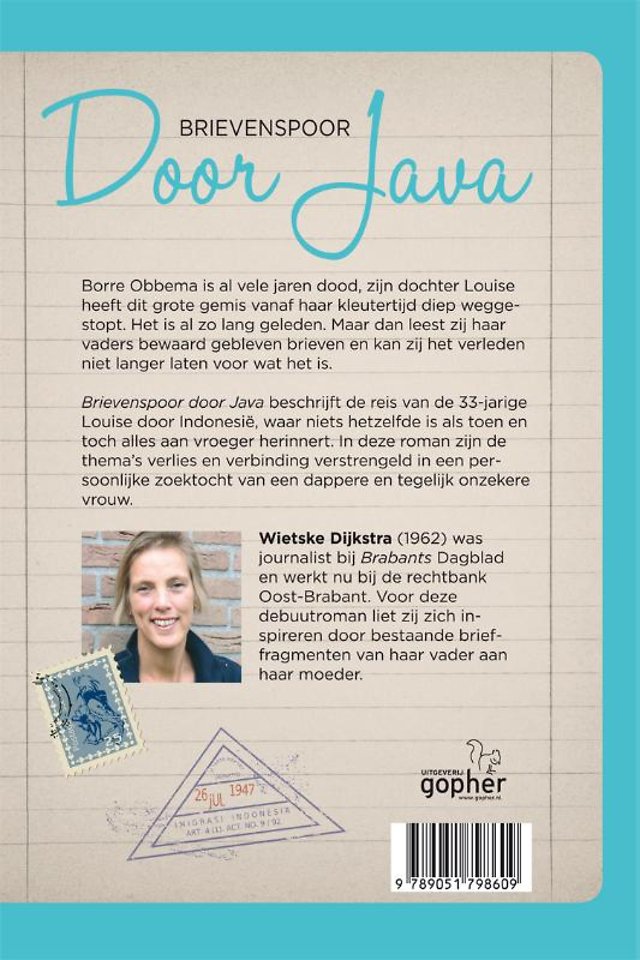 BRIEVENSPOOR
Door Java
Borre Obbema is al vele jaren dood, zijn dochter Louise
heeft dit grote gemis vanaf haar kleutertijd diep wegge-
stopt. Het is al zo lang geleden. Maar dan leest zij haar
vaders bewaard gebleven brieven en kan zij het verleden
niet langer laten voor wat het is.
Brievenspoor door Java beschrijft de reis van de 33-jarige
Louise door Indonesië, waar niets hetzelfde is als toen en
toch alles aan vroeger herinnert. In deze roman zijn de
thema's verlies en verbinding verstrengeld in een per-
soonlijke zoektocht van een dappere en tegelijk onzekere
vrouw.
Wietske Dijkstra (1962) was
journalist bij Brabants Dagblad
en werkt nu bij de rechtbank
Oost-Brabant. Voor deze
debuutroman liet zij zich in-
spireren door bestaande brief-
fragmenten van haar vader aan
haar moeder.
26 JUL 1947
IMIGRASI INDONESIA
ART. 4 (1). ACT. NO. 9 / 92
UITGEVERIJ
gopher
www.gopher.nl
9 789051 798609